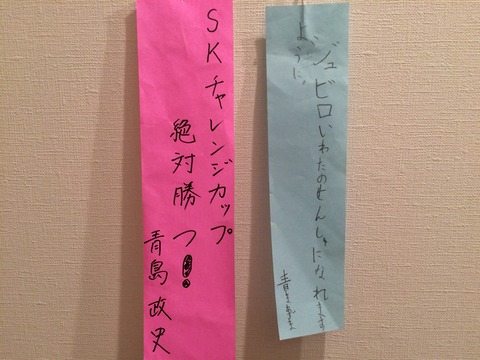 ジュビロいわたのせんしゅになれます
ように。
SKチャレンジカップ
絶対勝つ!
青島政史